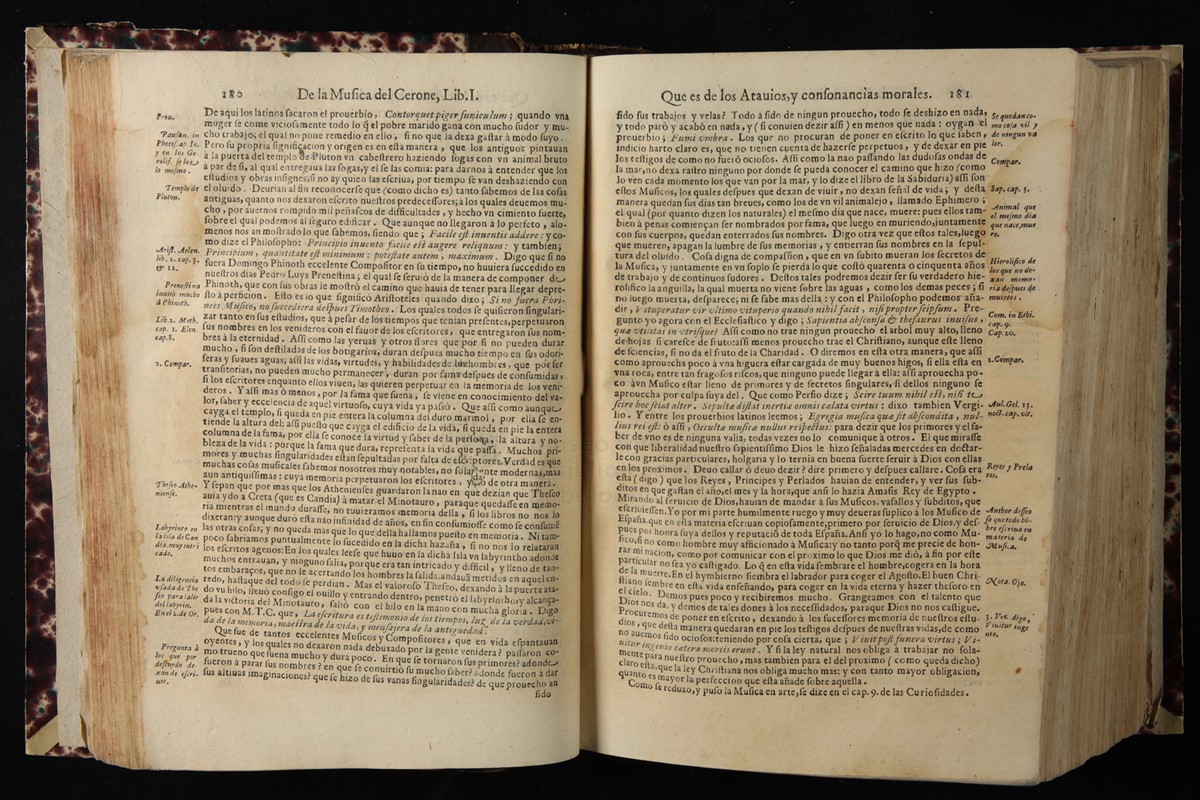 180 De la Musica del Cerone, Lib. I.
De aqui los latinos sacaron el prouerbio, Contorquet piger funiculum; quando vna
muger se come viciosamente todo lo q̃ el pobre marido gana con mucho sudor y mu-
cho trabajo; el qual no pone remedio en ello, sino que la dexa gastar à modo suyo.
Pero su propria significacion y origen es en esta manera, que los antiguos pintauan
à la puerta del templo de Pluton vn cabestrero haziendo sogas con vn animal bruto
à par de si, al qual entregaua las sogas, y el se las comia: para darnos à entender que los
estudios y obras insignes, si no ay quien las escriua, por tiempo se van deshaziendo con
el oluido. Deurian al fin reconocerse que (como dicho es) tanto sabemos de las cosas
antiguas, quanto nos dexaron escrito nuestros predecessores; à los quales deuemos mu-
cho, por auernos rompido mil peñascos de difficultades, y hecho vn cimiento fuerte,
sobre el qual podemos al seguro edificar. Que aunque no llegaron à lo perfeto, alo-
menos nos an mostrado lo que sabemos, siendo que; Facile est inuentis addere: y co-
mo dize el Philosopho: Principio inuento facile est augere reliquum: y tambien;
Principium, quantitate est minimum; potestate autem, maximum. Digo que si no
fuera Domingo Phinoth eccelente Compositor en su tiempo, no huuiera succedido en
nuestros dias Pedro Luys Prenestina; el qual se seruiò de la manera de componer de
Phinoth, que con sus obras le mostrò el camino que hauia de tener para llegar depre-
sto à perficion. Esto es lo que significò Aristoteles quando dixo; Si no fuera Phri-
nees Musico, no succediera despues Timotheo. Los quales todos se quisieron singulari-
zar tanto en sus estudios, que à pesar de los tiempos que tenian presentes, perpetuaron
sus nombres en los venideros con el fauor de los escritores, que entregaron sus nom-
bres à la eternidad. Assi como las yeruas y otros flores que por si no pueden durar
mucho, si son destiladas de los botigarios, duran despues mucho tiempo en sus odori-
feras y suaues aguas; assi las vidas, virtudes, y habilidades de los hombres, que por ser
transitorias, no pueden mucho permanecer, duran por fama despues de consumidas,
si los escritores enquanto ellos viuen, las quieren perpetuar en la memoria de los veni-
deros. Y assi mas ò menos, por la fama que suena, se viene en conocimiento del va-
lor, saber y eccelencia de aquel virtuoso, cuya vida ya pasò. Que assi como aunque
cayga el templo, si queda en pie entera la columna del duro marmol, por ella se en-
tiende la altura del: assi puesto que cayga el edificio de la vida, si queda en pie la entera
columna de la fama, por ella se conoce la virtud y saber de la persona, la altura y no-
bleza de la vida: porque la fama que dura, representa la vida que passa. Muchos pri-
mores y muchas singularidades estan sepultadas por falta de escriptores. Verdad es que
muchas cosas musicales sabemos nosotros muy notables, no solamente modernas, mas
aun antiquissimas: cuya memoria perpetuaron los escritores, y no de otra manera.
Y sepan que por mas que los Athenienses guardaron la nao en que dezian que Theseo
auia ydo a Creta (que es Candia) à matar el Minotauro, paraque quedasse en memo-
ria mientras el mundo durasse, no tuuieramos memoria della, si los libros no nos lo
dixeran: y aunque durò esta nao infinidad de años, en fin consumiosse como se consumẽ
las otras cosas; y no queda mas que lo que della hallamos puesto en memoria. Ni tam-
poco sabriamos puntualmente lo sucedido en la dicha hazaña, si no nos lo relataran
los escritos agenos: En los quales leese que huuo en la dicha Isla vn labyrintho adonde
muchos entrauan, y ninguno salia, porque era tan intricado y difficil, y lleno de tan-
tos embaraços, que no le acertando los hombres la salida, andauã metidos en aquel en-
redo, hastaque del todo se perdian. Mas el valoroso Theseo, dexando à la puerta ata-
do vn hilo, lleuò consigo el ouillo y entrando dentro, penetrò el labyrintho, y alcança-
da la victoria del Minotauro, saliò con el hilo en la mano con mucha gloria. Digo
pues con M.T.C. que, La escritura es testimonio de los tiempos, luz de la verdad, vi-
da de la memoria, maestra de la vida, y mensajera de la antiguedad.
Que fue de tantos eccelentes Musicos y Compositores, que en vida espantauan
oyentes, y los quales no dexaron nada debuxado por la gente venidera? passaron co-
mo trueno que suena mucho y dura poco. En que se tornaron sus primores? adonde
fueron à parar sus nombres? en que se conuirtiò su mucho saber? adonde fueron à dar
sus altiuas imaginaciones? que se hizo de sus vanas singularidades? de que prouecho an
sido
Prou.
Pausan. in
Photif. ap. Io.
y en los Ge
rolif. se lee
lo mesmo.
Templo de
Pluton.
Arist. Aelen.
lib. 2. cap. 3.
& 12.
Prenestina
imitò mucho
à Phinoth.
Lib. 2. Meth.
cap. 1. Elen.
cap. 8.
2. Compar.
Theseo Athe-
niense.
Labyrinto en
la isla de Can
dia, muy intri
cado.
La diligencia
vsada de The
seo para salir
del labyrin.
En el 2. de Or.
Pregunta à
los que por
descuydo de-
xan de escri-
uir.
Que es de los Atauios, y consonancias morales. 181
sido sus trabajos y velas? Todo à sido de ningun prouecho, todo se deshizo en nada,
y todo parò y acabò en nada, y (si conuien dezir assi) en menos que nada: oygan el
prouerbio; Fumi vmbra. Los que no procuran de poner en escrito lo que saben,
indicio harto claro es, que no tienen cuenta de hazerse perpetuos, y de dexar en pie
los testigos de como no fuerõ ociosos. Assi como la nao passando las dudosas ondas de
la mar, no dexa rastro ninguno por donde se pueda conocer el camino que hizo (como
lo ven cada momento los que van por la mar, y lo dize el libro de la Sabiduria) assi son
estos Musicos, los quales despues que dexan de viuir, no dexan señal de vida; y desta
manera quedan sus dias tan breues, como los de vn vil animalejo, llamado Ephimero;
el qual (por quanto dizen los naturales) el mesmo dia que nace, muere: pues ellos tam-
bien à penas començan ser nombrados por fama, que luego en muriendo, juntamente
con sus cuerpos, quedan enterrados sus nombres. Digo otra vez que estos tales, luego
que mueren, apagan la lumbre de sus memorias, y entierran sus nombres en la sepul-
tura del oluido. Cosa digna de compassion, que en vn subito mueran los secretos de
la Musica, y juntamente en vn soplo se pierda lo que costò quarenta o cinquenta años
de trabajo y de continuos sudores. Destos tales podremos dezir ser su verdadero hie-
rolifico la anguilla, la qual muerta no viene sobre las aguas, como los demas peces; si
no luego muerta, desparece; ni se sabe mas della: y con el Philosopho podemos aña-
dir, Vituperatur vir vltimo vituperio quando nihil facit, nisi propter seipsum. Pre-
gunto yo agora con el Ecclesiastico y digo; Sapientia absconsa & thesaurus inuisus,
qua vtilitas in vtrisque? Assi como no trae ningun prouecho el arbol muy alto, lleno
de hojas si caresce de fruto: assi menos prouecho trae el Christiano, aunque este lleno
de sciencias, si no da el fruto de la Charidad. O diremos en esta otra manera, que assi
como aprouecha poco à vna higuera estar cargada de muy buenos higos, si ella està en
vna roca, entre tan fragosos riscos, que ninguno puede llegar à ella: assi aprouecha po-
co à vn Musico estar lleno de primores y de secretos singulares, si dellos ninguno se
aprouecha por culpa suya del. Que como Persio dize; Scire tuum nihil est, nisi te
scire hoc sciat alter. Sepulta distat inertia omnis calata virtus: dixo tambien Vergi-
lio. Y entre los prouerbios latinos leemos; Egregia musica qua sit abscondita, nul-
lius rei est: ò assi, Occulta musica nullus respectus: para dezir que los primores y el sa-
ber de vno es de ninguna valia, todas vezes no lo comuniquè à otros. El que mirasse
con que liberalidad nuestro sapientissimo Dios le hizo señaladas mercedes en doctar-
le con gracias particulares, holgaria y lo ternia en buena suerte seruir à Dios con ellas
en los proximos. Deuo callar ò deuo dezir? dire primero y despues callare. Cosa era
esta (digo) que los Reyes, Principes y Perlados hauian de entender, y ver sus sub-
ditos en que gastan el año, el mes y la hora, que ansi lo hazia Amasis Rey de Egypto.
Mirando al seruicio de Dios, hauian de mandar à sus Musicos, vasallos y subditos, que
escriuiessen. Yo por mi parte humilmente ruego y muy deueras suplico à los Musico de
España, que en esta materia escriuan copiosamente, primero por seruicio de Dios, y des-
pues por honra suya dellos y reputaciõ de toda España. Ansi yo lo hago, no como Mu-
sico, si no como hombre muy afficionado à Musica: y no tanto porq̃ me precie de hon-
rar mi nacion, como por comunicar con el proximo lo que Dios me diò, à fin por este
particular no sea yo castigado. Lo q̃ en esta vida sembrare el hombre, cogera en la hora
de la muerte. En el hymbierno siembra el labrador para coger el Agosto. El buen Chri-
stiano sembre en esta vida enseñando, para coger en la vida eterna y hazer thesoro en
el cielo. Demos pues poco y recibiremos mucho. Grangeamos con el talento que
Dios nos da, y demos de tales dones à los necessidados, paraque Dios no nos castigue.
Procuremos de poner en escrito, dexando à los sucessores memoria de nuestros estu-
dios, que desta manera quedaran en pie los testigos despues de nuestras vidas, de como
no auemos sido ociosos: teniendo por cosa cierta, que; Viuit post funera virtus; Vi-
uitur ingenio cætera mortis erunt. Y si la ley natural nos obliga à trabajar no sola-
mente para nuestro prouecho, mas tambien para el del proximo (como queda dicho)
claro està, que la ley Christiana nos obliga mucho mas: y con tanto mayor obligacion,
quanto es mayor la perfeccion que esta añade sobre aquella.
Como se reduxo, y puso la Musica en arte, se dize en el cap. 9. de las Curiosidades.
Se quedan co-
mo cosa vil y
de ningun va
lor.
Compar.
Sap. cap. 5.
Animal que
el mesmo dia
que nace, mue
re.
Hierolifico de
los que no de-
xan memo-
ria despues de
muertos.
Com. in Ethi.
cap. 9.
Cap. 20.
2. Compar.
Aul. Gel. 13.
noct. cap. vit.
Reyes y Prela
tos.
Author desseo
so que todo hõ-
bre escriua en
materia de
Musica.
Nota. Ojo.
3. Ver. digo,
Viuitur inge
nio.